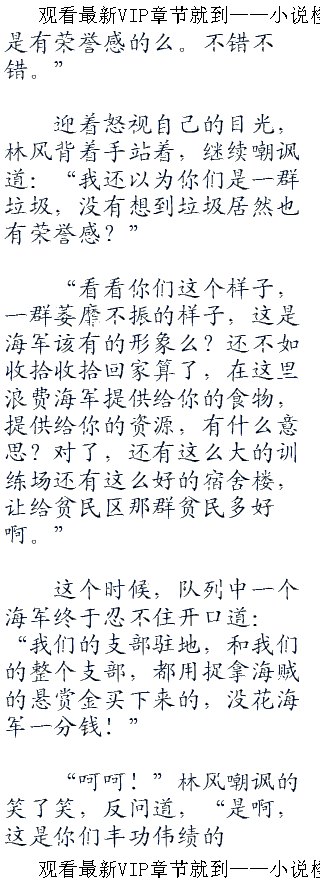 观看最新VIP章节就到——小说楼
是有荣誉感的么。不错不
错。”
迎着怒视自己的目光，
林风背着手站着，继续嘲讽
道：“我还以为你们是一群
垃圾，没有想到垃圾居然也
有荣誉感？”
“看看你们这个样子，
一群萎靡不振的样子，这是
海军该有的形象么？还不如
收拾收拾回家算了，在这里
浪费海军提供给你的食物，
提供给你的资源，有什么意
思？对了，还有这么大的训
练场还有这么好的宿舍楼，
让给贫民区那群贫民多好
啊。”
这个时候，队列中一个
海军终于忍不住开口道：
“我们的支部驻地，和我们
的整个支部，都用捉拿海贼
的悬赏金买下来的，没花海
军一分钱！”
“呵呵！”林风嘲讽的
笑了笑，反问道，“是啊，
这是你们丰功伟绩的
观看最新VIP章节就到——小说楼